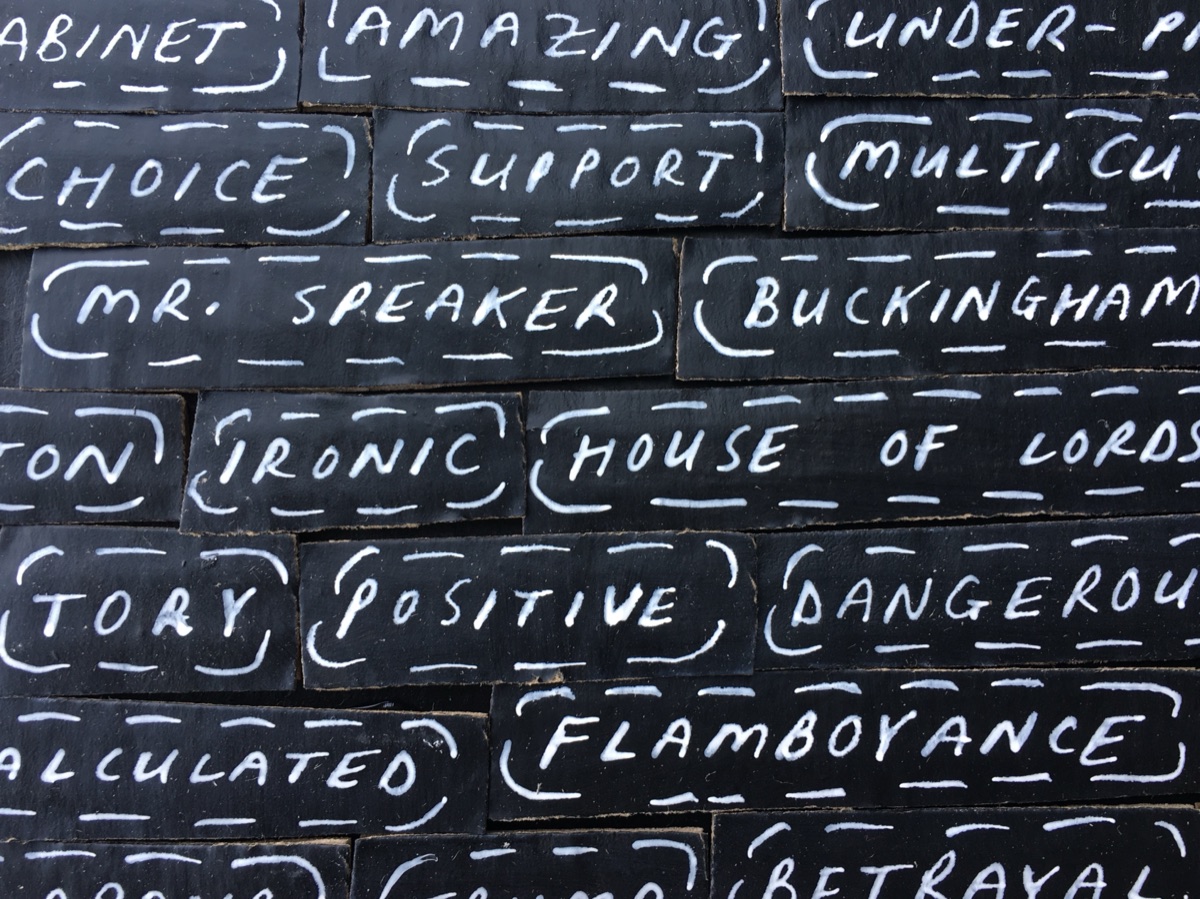 ABINET AMAZING UNDER-
CHOICE SUPPORT MULTICU
MR. SPEAKER BUCKINGHAM
TON IRONIC HOUSE OF LORDS
TORY POSITIVE DANGEROU
ALCULATED FLAMBOYANCE
BETRAYAL